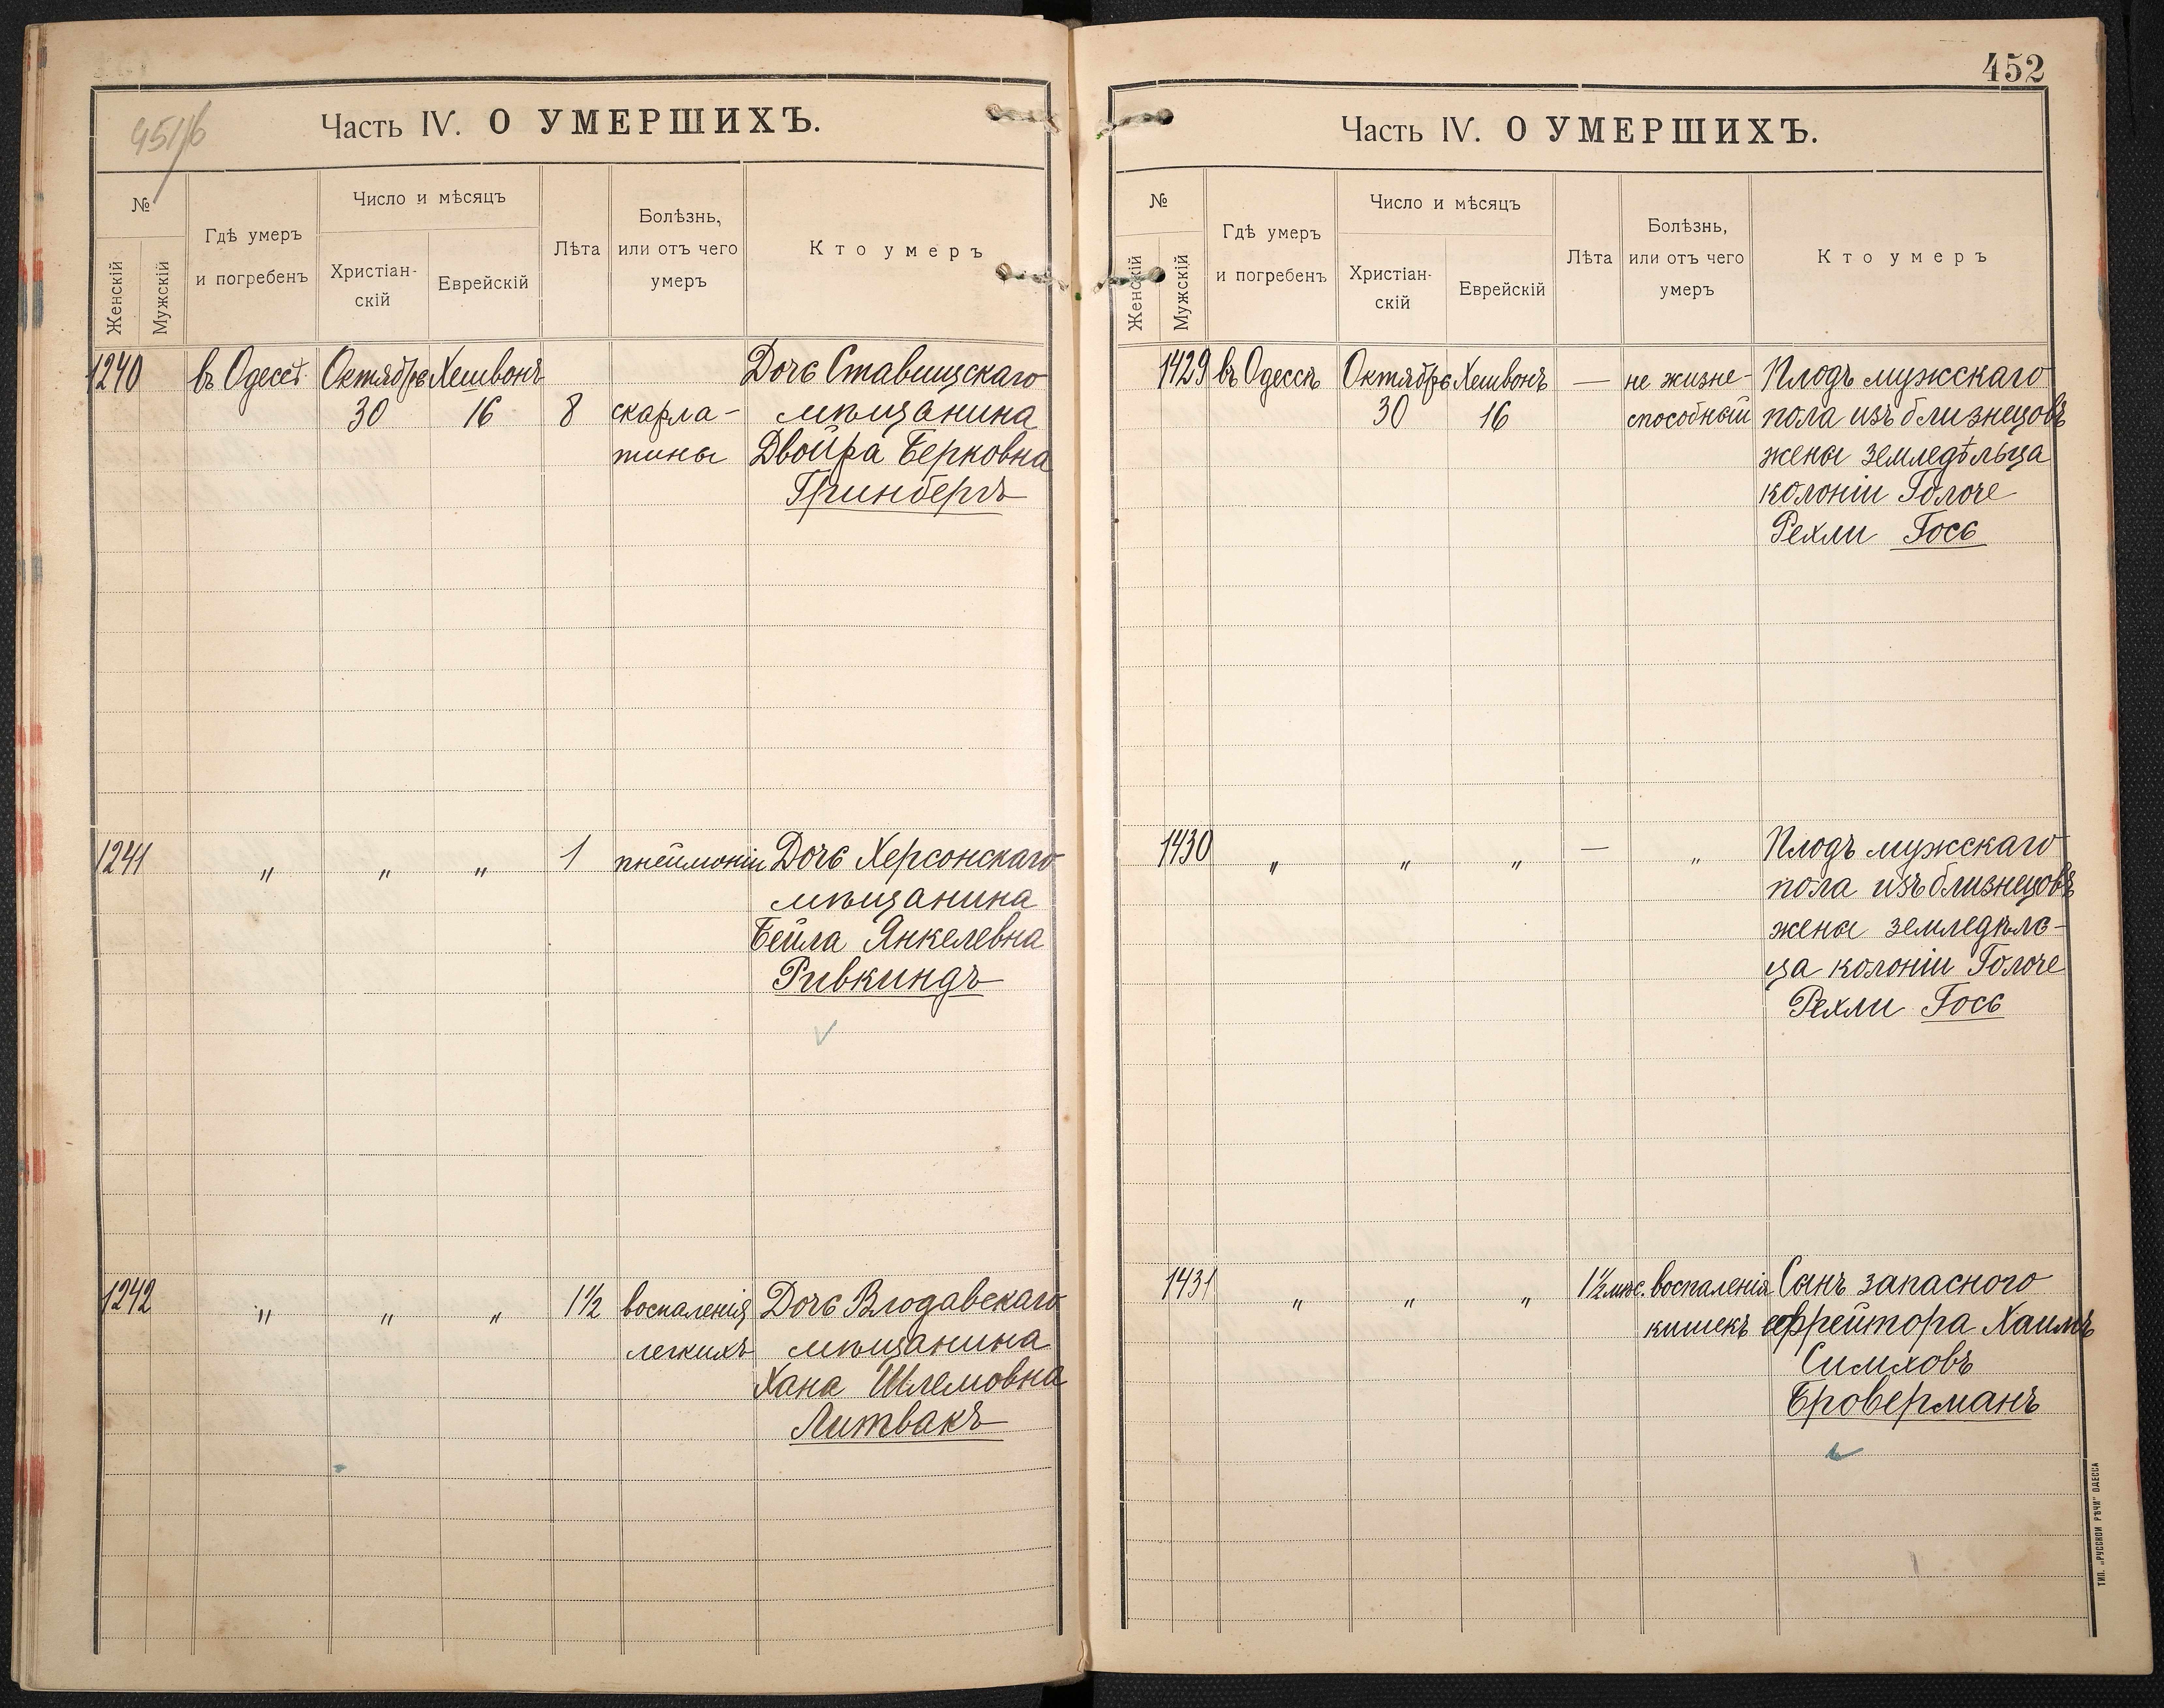 451/б
Часть IV. О УМЕРШИХЪ.
№
Женскій
Мужскій
Гдѣ умеръ
и погребенъ
Число и мѣсяцъ
Христіан-
скій
Еврейскій
Лѣта
Болѣзнь,
или отъ чего
умеръ
Кто умеръ
1240 въ Одессѣ Октябрь Хешвонъ Дочь Ставищскаго
30 16 8 скарла- мѣщанина
тины Двойра Берковна
Гринбергъ
1241 " " " 1 пнеймоніи Дочь Херсонскаго
мѣщанина
Бейла Янкелевна
Ривкиндъ
1242 " " " 1½ воспаленія Дочь Влодавскаго
легкихъ мѣщанина
Хана Шлемовна
Литвакъ
452
Часть IV. О УМЕРШИХЪ.
№
Женскій
Мужскій
Гдѣ умеръ
и погребенъ
Число и мѣсяцъ
Христіан-
скій
Еврейскій
Лѣта
Болѣзнь,
или отъ чего
умеръ
Кто умеръ
1429 въ Одессѣ Октябрь Хешвонъ — не жизне- Плодъ мужскаго
30 16 способный пола изъ близнецовъ
жены земледѣльца
колоніи Голоче
Рехли Гось
1430 " " " — " Плодъ мужскаго
пола изъ близнецовъ
жены земледѣль-
ца колоніи Голоче
Рехли Гось
1431 " " " 1½ мѣс. воспаленія Сынъ запасного
кишекъ ефрейтора Хаимъ
Симховъ
Броверманъ
ТИП. „РУССКОЙ РѢЧИ" ОДЕССА